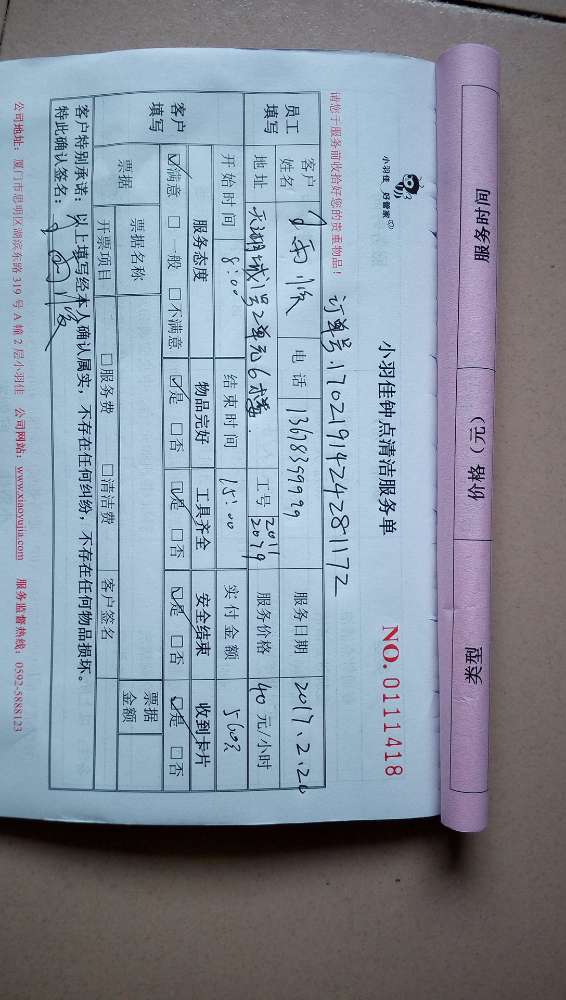 服务时间 价格（元） 类型
小羽佳 好管家
小羽佳钟点清洁服务单
NO.0111418
订单号:1702191424281172
请您于服务前收拾好您的贵重物品！
员工填写 客户姓名 电话 13678399929 服务日期 2017.2.20
地址 天湖城1号2单元6楼 工号 2011 2079 服务价格 40元/小时
开始时间 8:00 结束时间 15:00 实付金额 560元
客户填写 服务态度 物品完好 工具齐全 安全结束 收到卡片
☑满意 □一般 □不满意 ☑是 □否 ☑是 □否 ☑是 □否 ☑是 □否
票据 票据名称 □服务费 □清洁费 客户签名 票据金额
开票项目
客户特别承诺：以上填写经本人确认属实，不存在任何纠纷，不存在任何物品损坏。
特此确认签名：
公司地址：厦门市思明区湖滨东路319号A幢2层小羽佳 公司网站：www.xiaoyujia.com 服务监督热线：0592-5888123